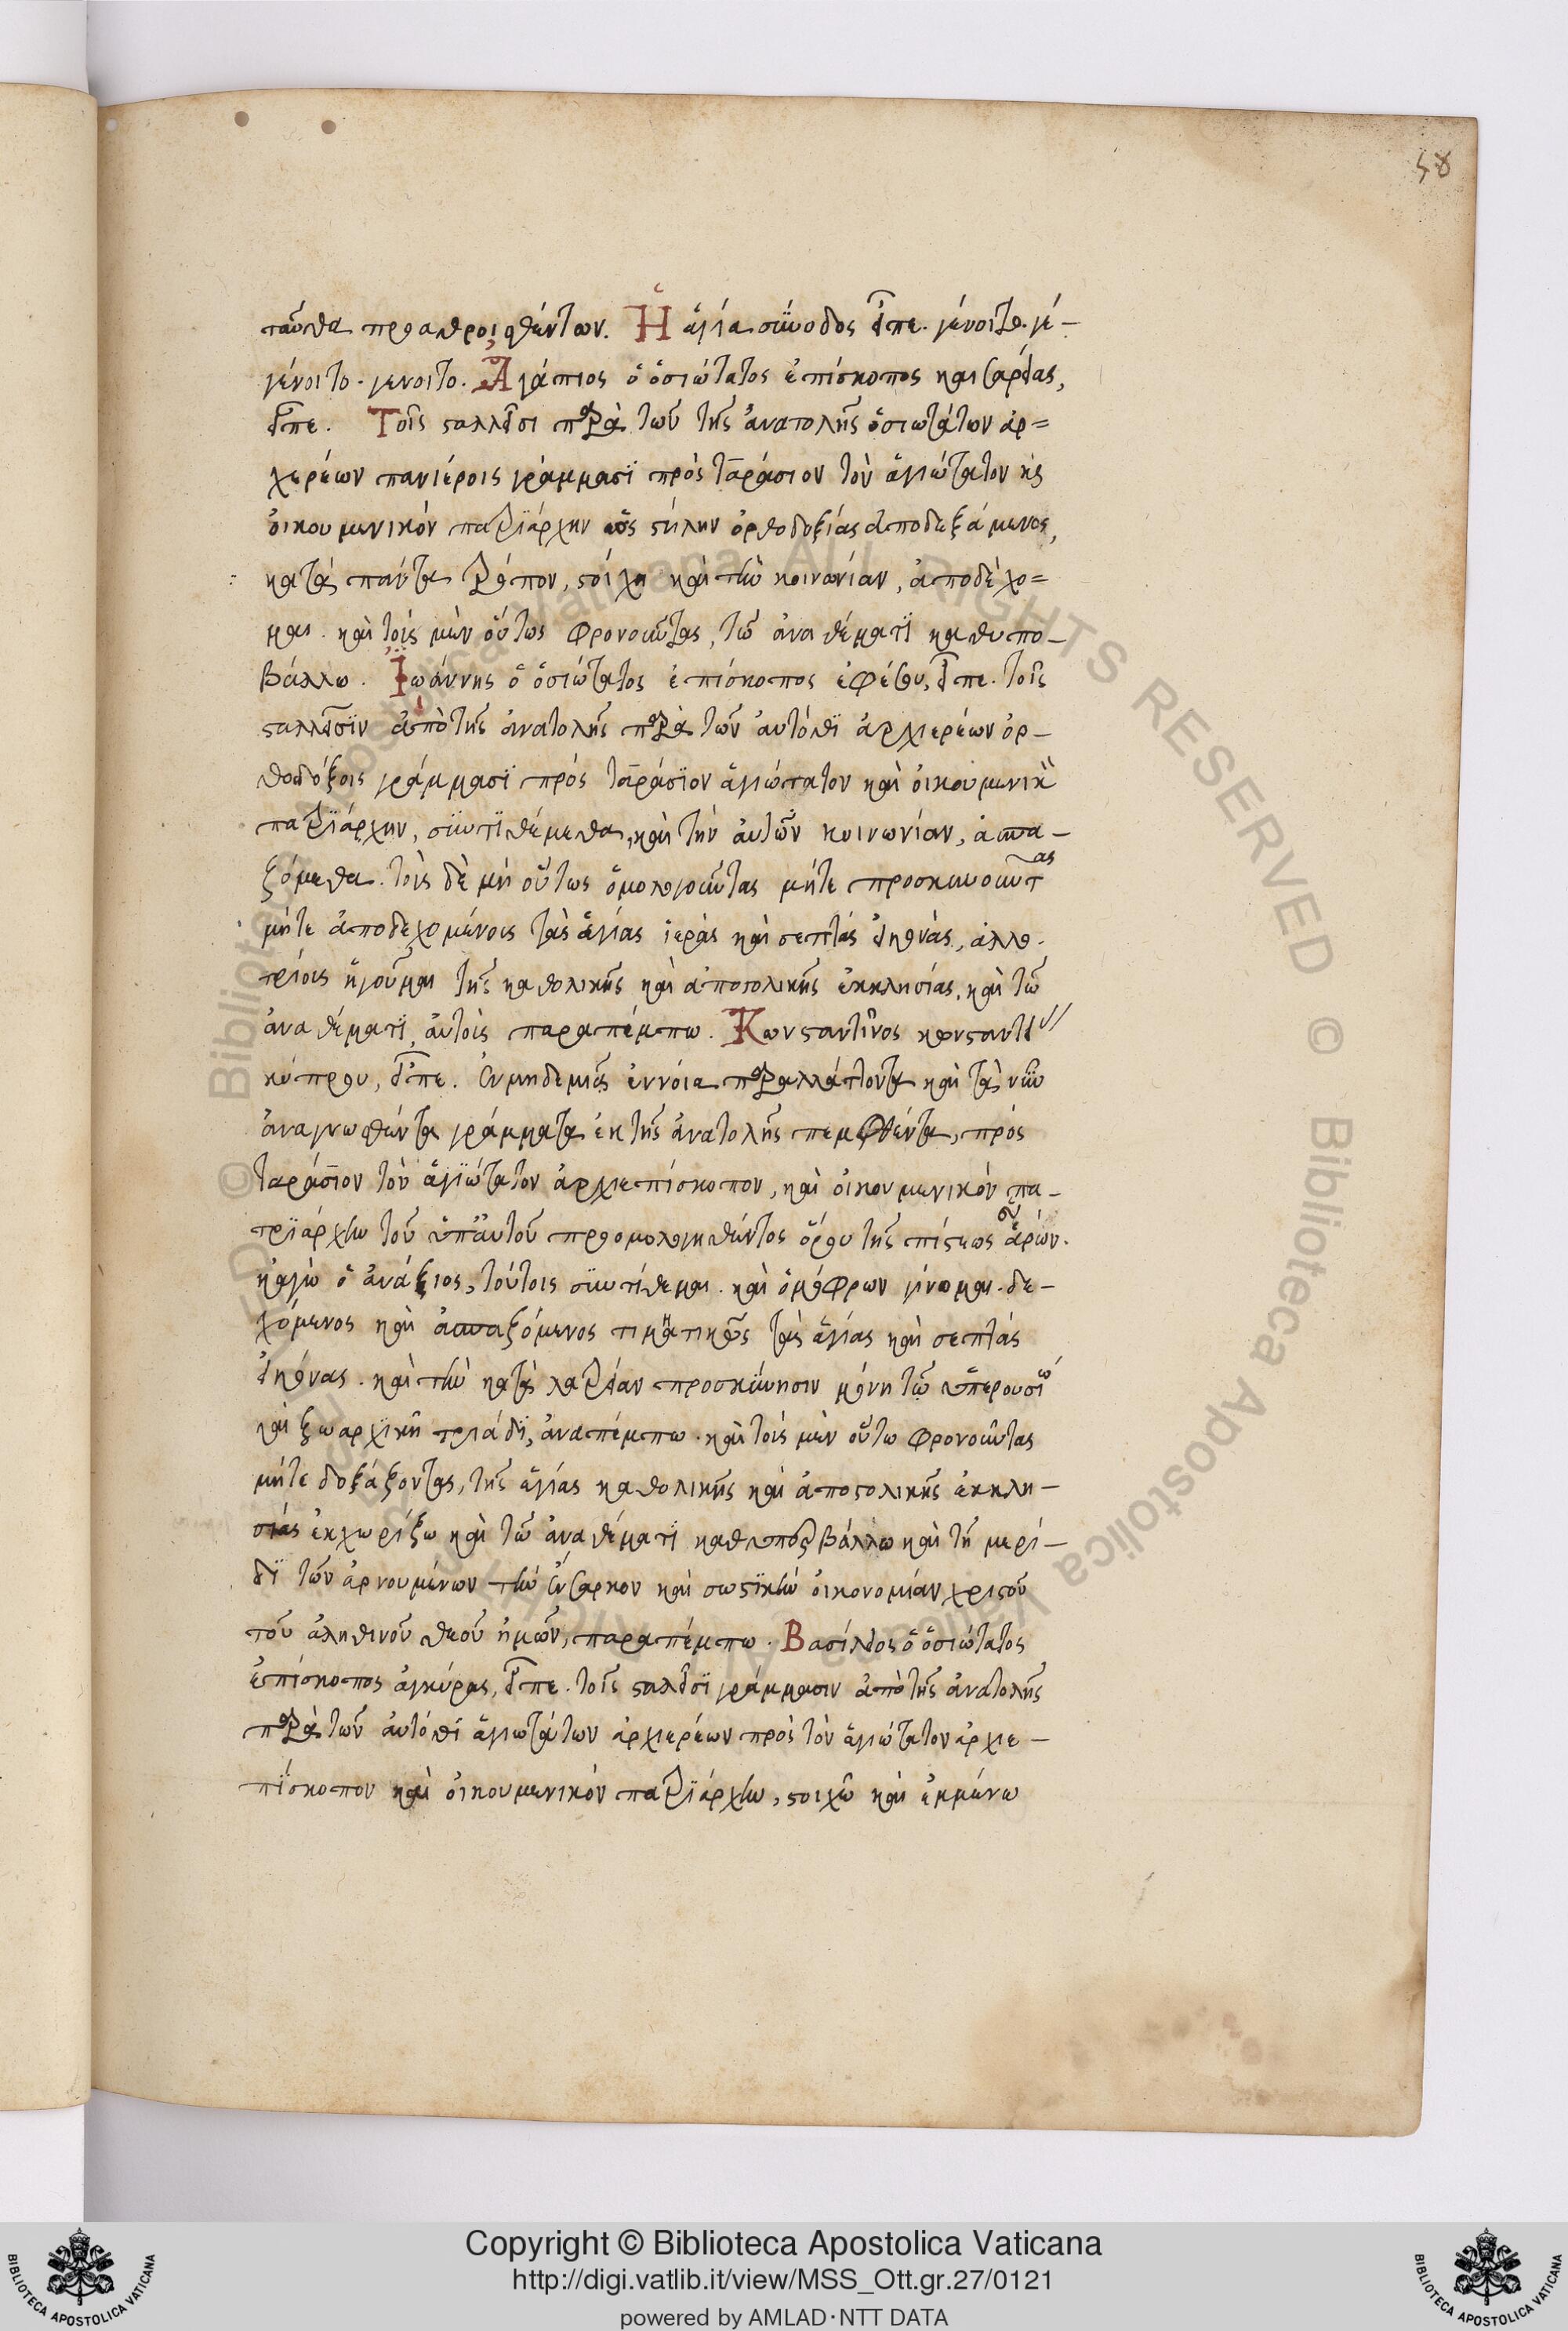 58
ταῦθα προαθροισθέντων. Ἡ ἁγία σύνοδος εἶπε. γένοιτο. γέ-
γένοιτο. γενοιτο. Ἀγάπιος ὁ ὁσιώτατος ἐπίσκοπος καισαρείας,
εἶπε. Τοῖς σταλεῖσι παρὰ τῶν τῆς ἀνατολῆς ὁσιωτάτων ἀρ=
χερέων πανιέροις γράμμασϊ πρὸς ταράσιον τὸν ἁγιώτατον κς
ὀικουμενικόν πατρϊάρχην ὡς στήλην ὀρθοδοξίας ἀποδεξάμενος,
κατὰ πάντα τρόπον, στοίχω καὶ τὴν κοινωνίαν, ἀποδέχο=
μαι. καὶ τοὶς μὲν οὕτως φρονοῦντας, τῶ ἀναθέματϊ καθυπο-
βάλλω. Ἰωάννης ὁ ὁσιώτατος ἐπίσκοπος ἐφέσου, εἶπε. τοῖς
σταλλεῖσϊν ἀπὸ τῆς ἀνατολῆς παρὰ τῶν ἀυτόθϊ ἀρχιερέων ὀρ-
θοδόξοις γράμμασϊ πρὸς ταράσϊον ἁγιώτατον καὶ ὀικουμενικὸν
πατρϊάρχην, συντϊθέμεθα, καὶ τὴν ἀυτῶν κοινωνίαν, ἀσπα-
ζόμεθα. τοὶς δὲ μὴ οὕτως ὁμολογοῦντας μήτε προσκυνοῦντας
μήτε ἀποδεχομένοις τὰς ἁγίας ἱερὰς καὶ σεπτάς εἰκονάς, ἀλλο.
τρίοις ἡγοῦμαι τῆς καθολικῆς καὶ ἀποστολικῆς ἐκκλησίας, καὶ τῶ
ἀναθέματϊ, ἀυτοὶς παραπέμπω. Κωνσταντῖνος κονσταντι//
κύπρου, εἶπε. Ἐν μηδεμιᾶς ἐννόια παραλλάττοντα καὶ τὰ νῦν
ἀναγνωθέντα γράμματα ἐκ τῆς ἀνατολῆς πεμφθέντα, πρὸς
ταράσϊον τὸν ἁγιώτατον ἀρχιεπίσκοπον, καὶ ὀικουμενικόν πα-
τρϊάρχην τοῦ ὑπ᾽ἀυτοῦ προομολογηθέντος ὅρου τῆς πίστεως
κἀγὼ ὁ ἀνάξιος, τούτοις συντίθεμαι. καὶ ὁμόφρων γίνομαι. δε-
χόμενος καὶ ἀσπαζόμενος τιμητικῶς τὰς ἁγίας καὶ σεπτάς
εἰκόνας. καὶ τὴν κατὰ λατρείαν προσκύνησιν μόνη τῶ ὑπερουσίω
καὶ ζωαρχϊκῆ τριάδϊ, ἀναπέμπω. καὶ τοὶς μὲν οὕτω φρονοῦντας
μήτε δοξάζοντας, τῆς ἁγίας καθολικῆς καὶ ἀποστολικῆς ἐκκλη-
σιάς ἐκχωρίζω καὶ τῶ ἀναθέματϊ καθυποβάλλω καὶ τῆ μερί-
δϊ τῶν ἀρνουμένων τὴν ἔνσαρκον καὶ σωστϊκὴν ὀικονομίαν χριστοῦ
τοῦ ἀληθινοῦ θεοῦ ἡμῶν, παραπέμπω. Βασίλειος ὁ ὁσιώτατος
ἐπίσκοπος ἀγκύρας, εἶπε. τοῖς σταλεῖσϊ γράμμασιν ἀπὸ τῆς ἀνατολῆς
παρὰ τῶν ἀυτόθϊ ἁγιωτάτων ἀρχιερέων πρὸς τὸν ἁγιώτατον ἀρχιε-
πϊσκοπον καὶ ὀικουμενικόν πατρϊάρχην, στοιχῶ καὶ ἐμμένω
Copyright © Biblioteca Apostolica Vaticana
http://digi.vatlib.it/view/MSS_Ott.gr.27/0121
powered by AMLAD·NTT DATA